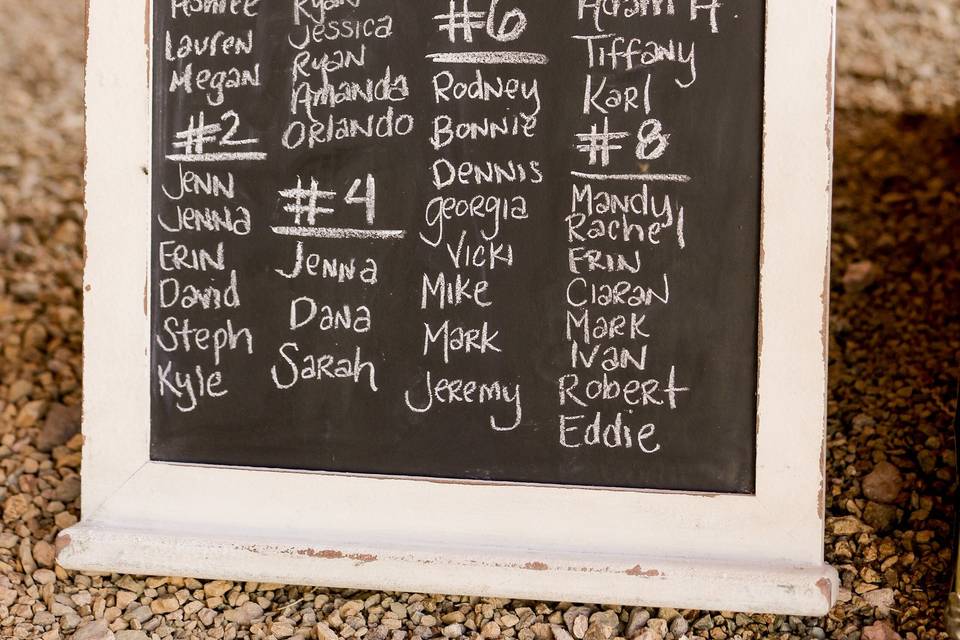 Ashlee
Lauren
Megan
#2
Jenn
Jenna
Erin
David
Steph
Kyle
Ryan
Jessica
Ryan
Amanda
Orlando
#4
Jenna
Dana
Sarah
#6
Rodney
Bonnie
Dennis
georgia
Vicki
Mike
Mark
Jeremy
Adam A
Tiffany
Karl
#8
Mandy
Rachel
Erin
Ciaran
Mark
Ivan
Robert
Eddie